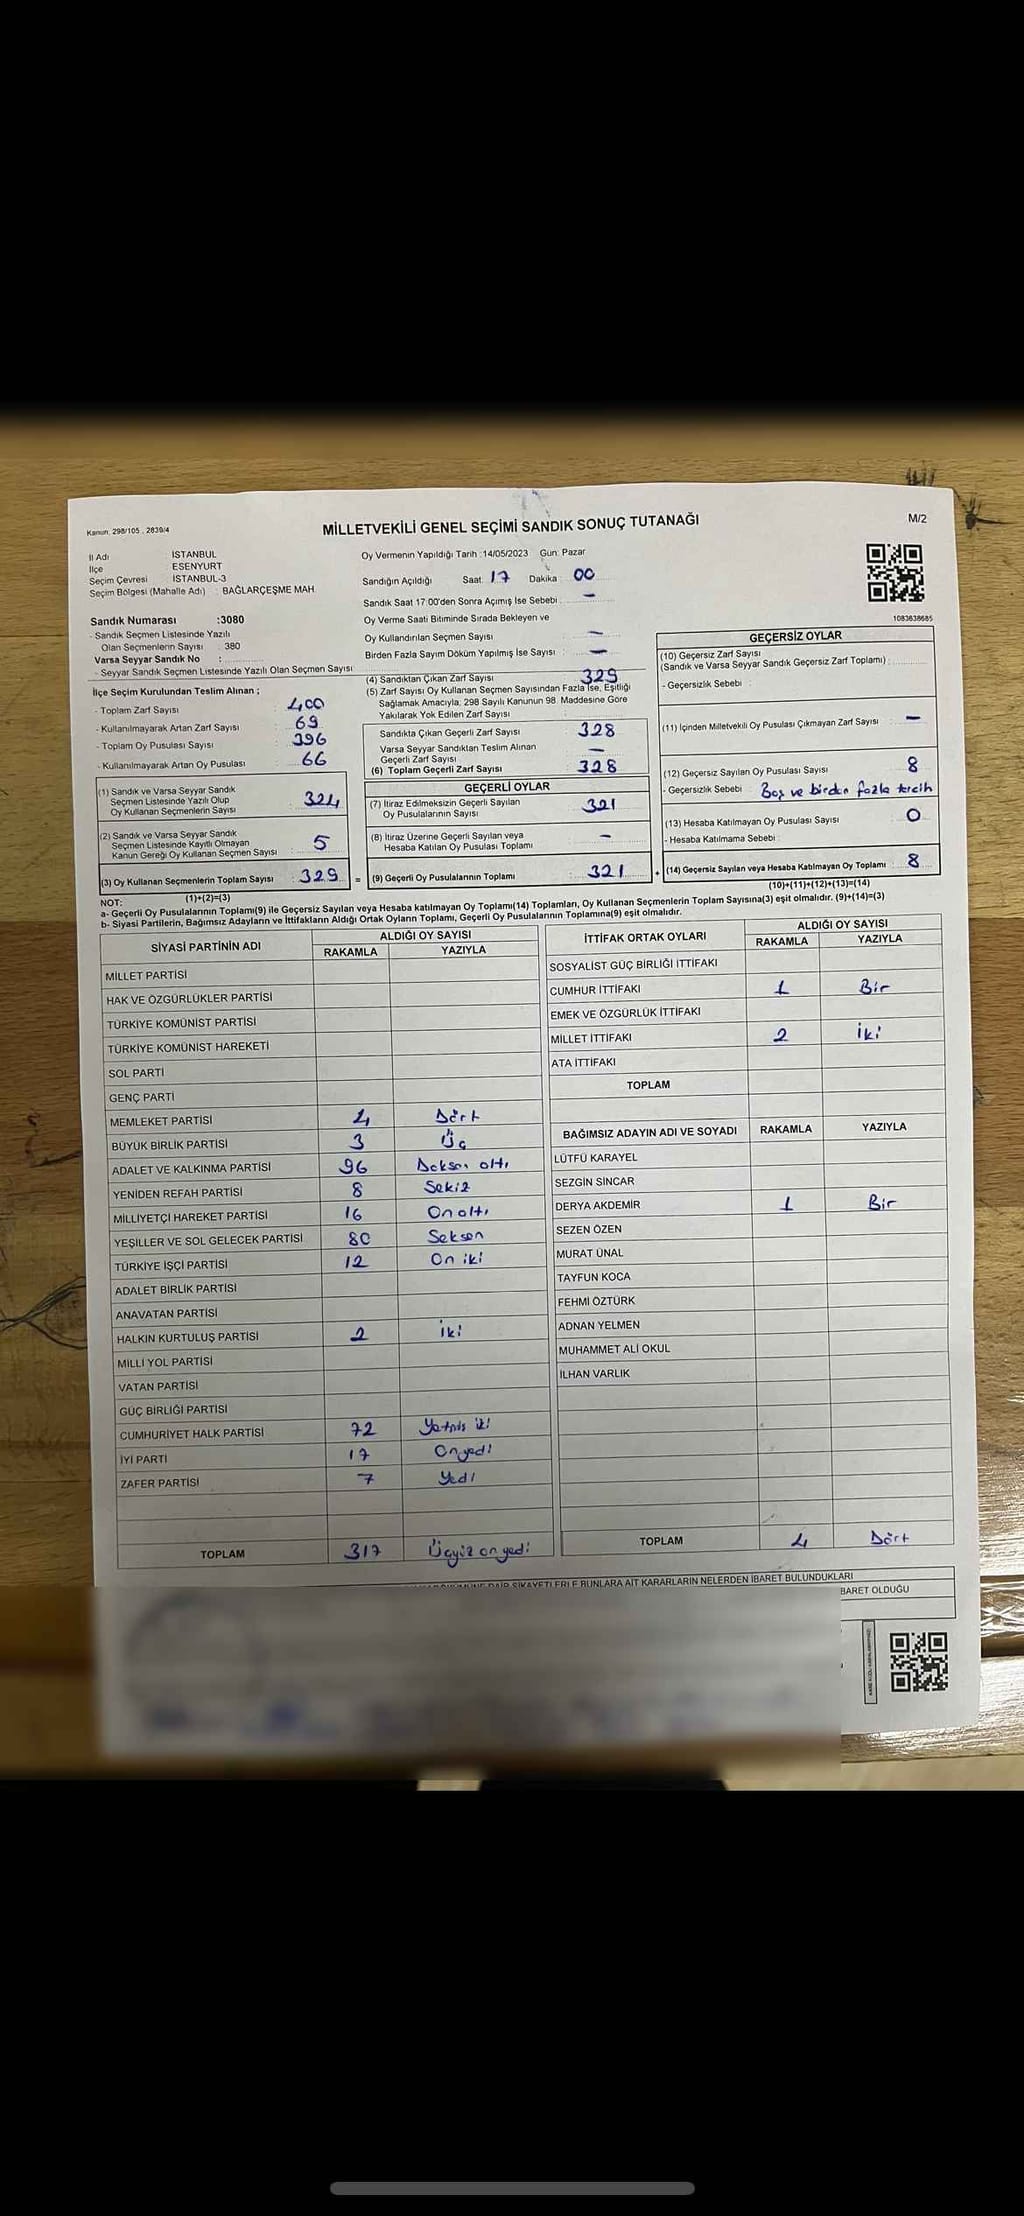 Kanun: 298/105 , 2839/4
MİLLETVEKİLİ GENEL SEÇİMİ SANDIK SONUÇ TUTANAĞI
M/2
İl Adı : İSTANBUL
İlçe : ESENYURT
Seçim Çevresi : İSTANBUL-3
Seçim Bölgesi (Mahalle Adı) : BAĞLARÇEŞME MAH
Sandık Numarası :3080
- Sandık Seçmen Listesinde Yazılı
Olan Seçmenlerin Sayısı : 380
Varsa Seyyar Sandık No :
- Seyyar Sandık Seçmen Listesinde Yazılı Olan Seçmen Sayısı
Oy Vermenin Yapıldığı Tarih :14/05/2023 Gün: Pazar
Sandığın Açıldığı Saat: 17 Dakika: 00
Sandık Saat 17:00'den Sonra Açımış İse Sebebi : —
Oy Verme Saati Bitiminde Sırada Bekleyen ve
Oy Kullandırılan Seçmen Sayısı : —
Birden Fazla Sayım Döküm Yapılmış İse Sayısı : —
1083638685
İlçe Seçim Kurulundan Teslim Alınan ;
- Toplam Zarf Sayısı : 400
- Kullanılmayarak Artan Zarf Sayısı : 69
- Toplam Oy Pusulası Sayısı : 396
- Kullanılmayarak Artan Oy Pusulası : 66
(1) Sandık ve Varsa Seyyar Sandık
Seçmen Listesinde Yazılı Olup
Oy Kullanan Seçmenlerin Sayısı : 324
(2) Sandık ve Varsa Seyyar Sandık
Seçmen Listesinde Kayıtlı Olmayan
Kanun Gereği Oy Kullanan Seçmen Sayısı : 5
(3) Oy Kullanan Seçmenlerin Toplam Sayısı : 329 =
(1)+(2)=(3)
(4) Sandıktan Çıkan Zarf Sayısı : 329
(5) Zarf Sayısı Oy Kullanan Seçmen Sayısından Fazla İse, Eşitliği
Sağlamak Amacıyla; 298 Sayılı Kanunun 98. Maddesine Göre
Yakılarak Yok Edilen Zarf Sayısı :
Sandıkta Çıkan Geçerli Zarf Sayısı : 328
Varsa Seyyar Sandıktan Teslim Alınan
Geçerli Zarf Sayısı : —
(6) Toplam Geçerli Zarf Sayısı : 328
GEÇERLİ OYLAR
(7) İtiraz Edilmeksizin Geçerli Sayılan
Oy Pusulalarının Sayısı : 321
(8) İtiraz Üzerine Geçerli Sayılan veya
Hesaba Katılan Oy Pusulası Toplamı : —
(9) Geçerli Oy Pusulalarının Toplamı : 321 +
GEÇERSİZ OYLAR
(10) Geçersiz Zarf Sayısı
(Sandık ve Varsa Seyyar Sandık Geçersiz Zarf Toplamı) :
- Geçersizlik Sebebi :
(11) İçinden Milletvekili Oy Pusulası Çıkmayan Zarf Sayısı : —
(12) Geçersiz Sayılan Oy Pusulası Sayısı : 8
- Geçersizlik Sebebi : Boş ve birden fazla tercih
(13) Hesaba Katılmayan Oy Pusulası Sayısı : 0
- Hesaba Katılmama Sebebi :
(14) Geçersiz Sayılan veya Hesaba Katılmayan Oy Toplamı : 8
(10)+(11)+(12)+(13)=(14)
NOT:
a- Geçerli Oy Pusulalarının Toplamı(9) ile Geçersiz Sayılan veya Hesaba katılmayan Oy Toplamı(14) Toplamları, Oy Kullanan Seçmenlerin Toplam Sayısına(3) eşit olmalıdır. (9)+(14)=(3)
b- Siyasi Partilerin, Bağımsız Adayların ve İttifakların Aldığı Ortak Oyların Toplamı, Geçerli Oy Pusulalarının Toplamına(9) eşit olmalıdır.
SİYASİ PARTİNİN ADI
ALDIĞI OY SAYISI
RAKAMLA YAZIYLA
MİLLET PARTİSİ
HAK VE ÖZGÜRLÜKLER PARTİSİ
TÜRKİYE KOMÜNİST PARTİSİ
TÜRKİYE KOMÜNİST HAREKETİ
SOL PARTİ
GENÇ PARTİ
MEMLEKET PARTİSİ 4 Dört
BÜYÜK BİRLİK PARTİSİ 3 Üç
ADALET VE KALKINMA PARTİSİ 96 Doksan altı
YENİDEN REFAH PARTİSİ 8 Sekiz
MİLLİYETÇİ HAREKET PARTİSİ 16 On altı
YEŞİLLER VE SOL GELECEK PARTİSİ 80 Seksen
TÜRKİYE İŞÇİ PARTİSİ 12 On iki
ADALET BİRLİK PARTİSİ
ANAVATAN PARTİSİ
HALKIN KURTULUŞ PARTİSİ 2 iki
MİLLİ YOL PARTİSİ
VATAN PARTİSİ
GÜÇ BİRLİĞİ PARTİSİ
CUMHURİYET HALK PARTİSİ 72 Yetmiş iki
İYİ PARTİ 17 On yedi
ZAFER PARTİSİ 7 Yedi
TOPLAM 317 Üçyüz on yedi
İTTİFAK ORTAK OYLARI
ALDIĞI OY SAYISI
RAKAMLA YAZIYLA
SOSYALİST GÜÇ BİRLİĞİ İTTİFAKI
CUMHUR İTTİFAKI 1 Bir
EMEK VE ÖZGÜRLÜK İTTİFAKI
MİLLET İTTİFAKI 2 İki
ATA İTTİFAKI
TOPLAM
BAĞIMSIZ ADAYIN ADI VE SOYADI RAKAMLA YAZIYLA
LÜTFÜ KARAYEL
SEZGİN SİNCAR
DERYA AKDEMİR 1 Bir
SEZEN ÖZEN
MURAT ÜNAL
TAYFUN KOCA
FEHMİ ÖZTÜRK
ADNAN YELMEN
MUHAMMET ALİ OKUL
İLHAN VARLIK
TOPLAM 4 Dört
DAİR ŞİKAYETLERLE BUNLARA AİT KARARLARIN NELERDEN İBARET BULUNDUKLARI
BARET OLDUĞU